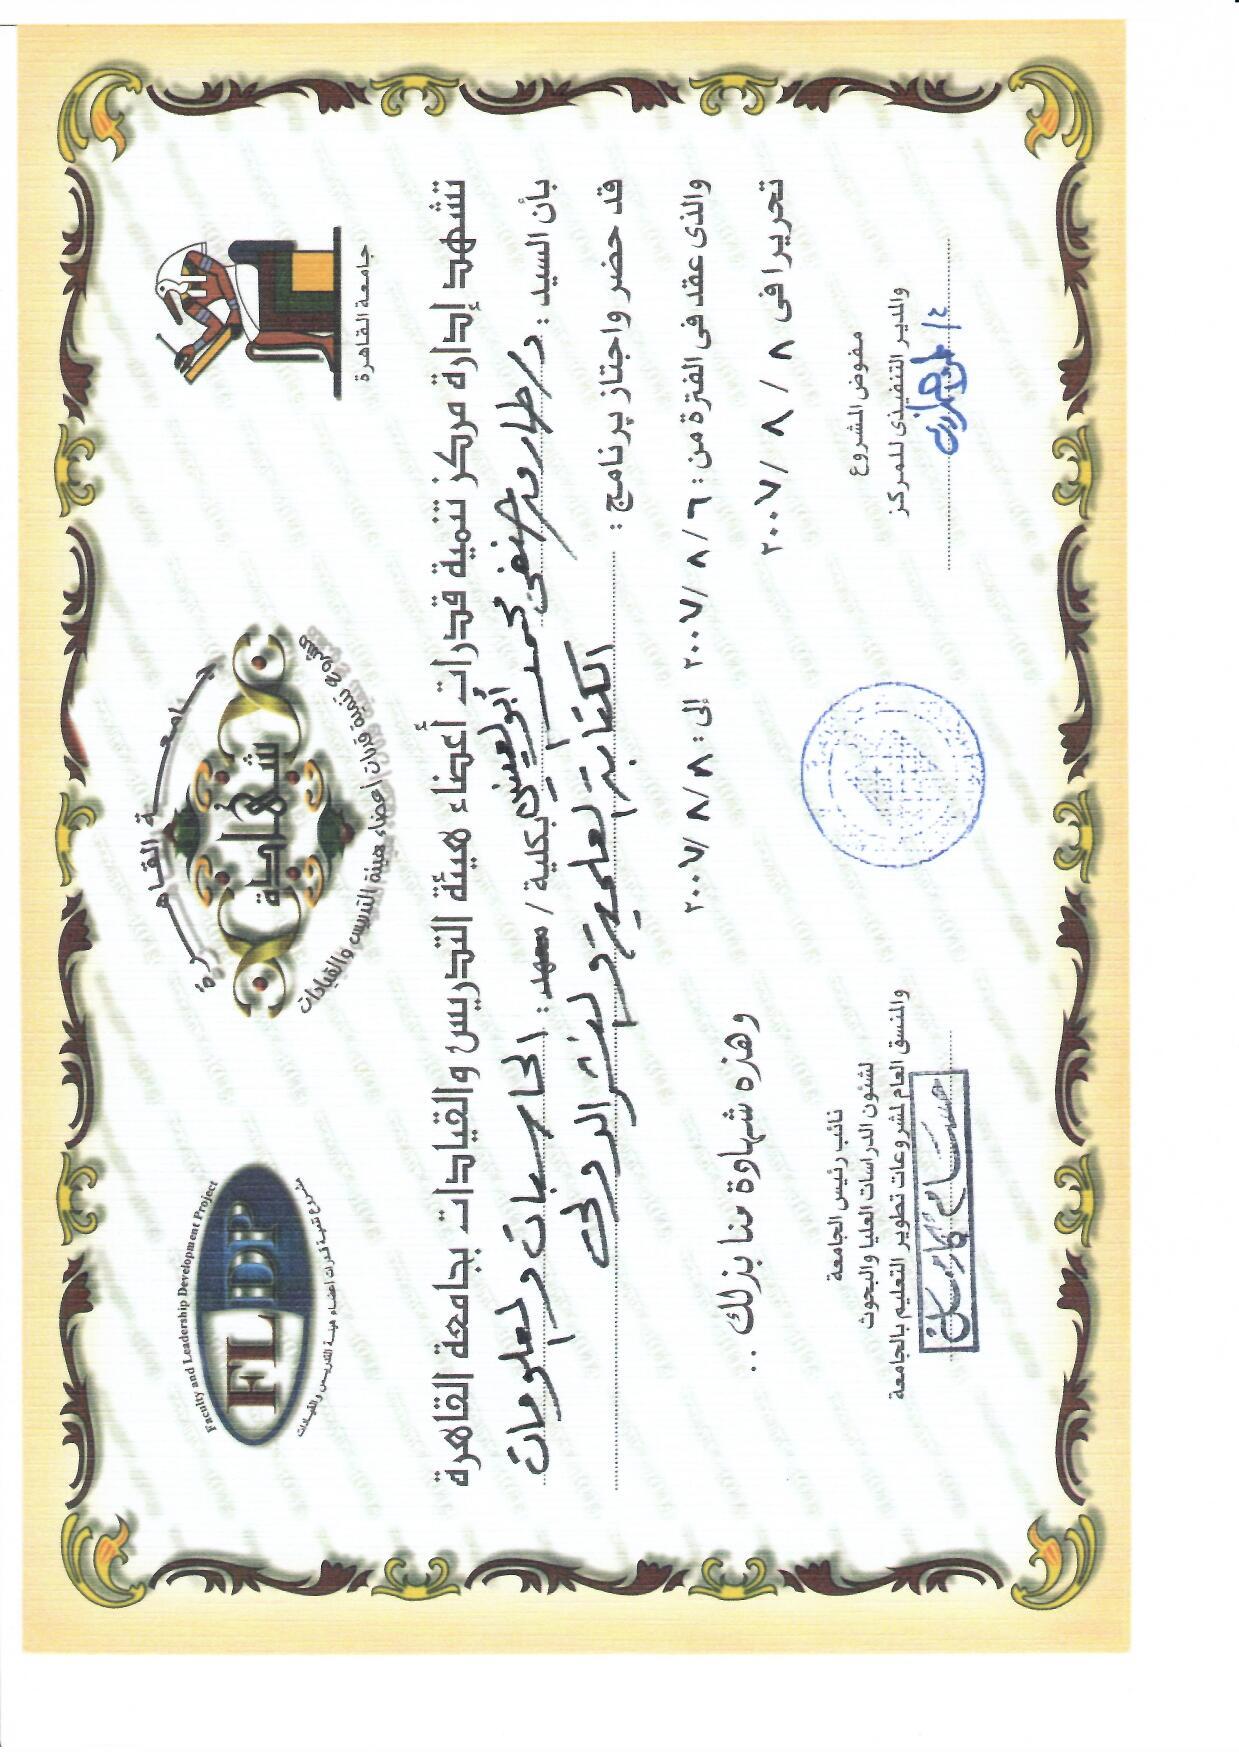 جامعة القاهرة
جامعة القاهرة
شهادة
مشروع تنمية قدرات أعضاء هيئة التدريس والقيادات
Faculty and Leadership Development Project
FLDP
مشروع تنمية قدرات أعضاء هيئة التدريس والقيادات
تشهد إدارة مركز تنمية قدرات أعضاء هيئة التدريس والقيادات بجامعة القاهرة
بأن السيد : د/ طارق حنفى محمد أبو العنين بكلية / معهد : الحاسبات والمعلومات
قد حضر واجتاز برنامج : الكتابة العلمية والنشر الدولى
والذى عقد فى الفترة من : ٦ / ٨ / ٢٠٠٧ إلى : ٨ / ٨ / ٢٠٠٧
وهذه شهادة منا بذلك ..
تحريرا فى ٨ / ٨ / ٢٠٠٧
مفوض المشروع
والمدير التنفيذى للمركز
نائب رئيس الجامعة
لشئون الدراسات العليا والبحوث
والمنسق العام لمشروعات تطوير التعليم بالجامعة